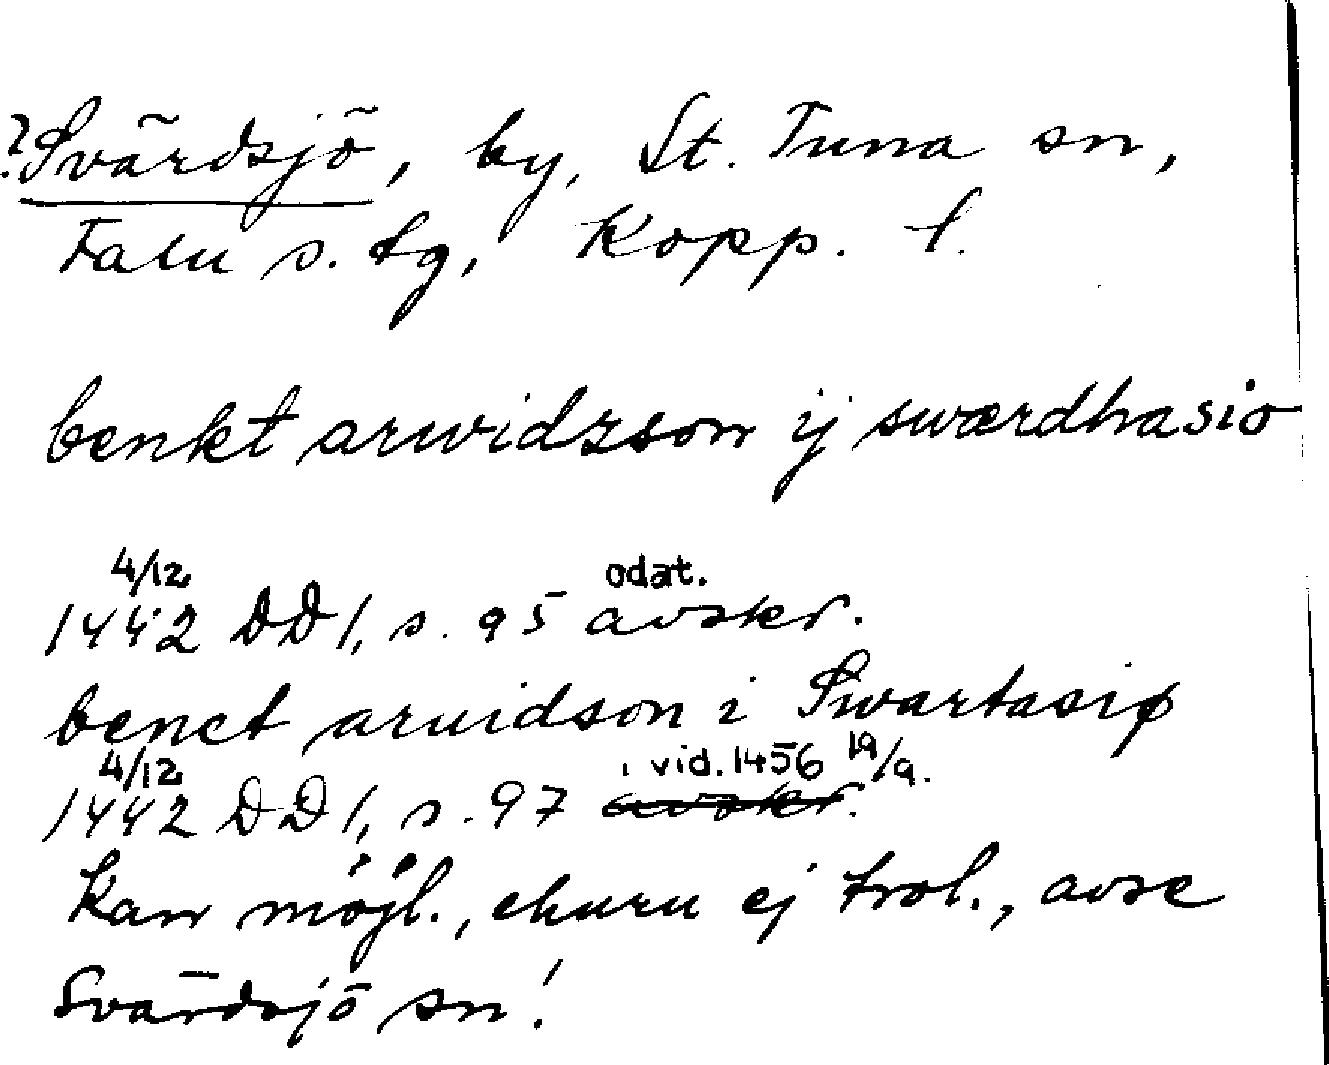 ?Svärdsjö, by, St. Tuna sn,
Falu s. tg, Kopp. l.
benkt arwidzson ij swærdhasio
4/12 odat.
1442 DD 1, s. 95 avskr.
benct aruidson i Swartasiø
4/12 i vid. 1456 19/9.
1442 DD 1, s. 97 avskr.
Kan möjl., ehuru ej trol., avse
Svärdsjö sn!